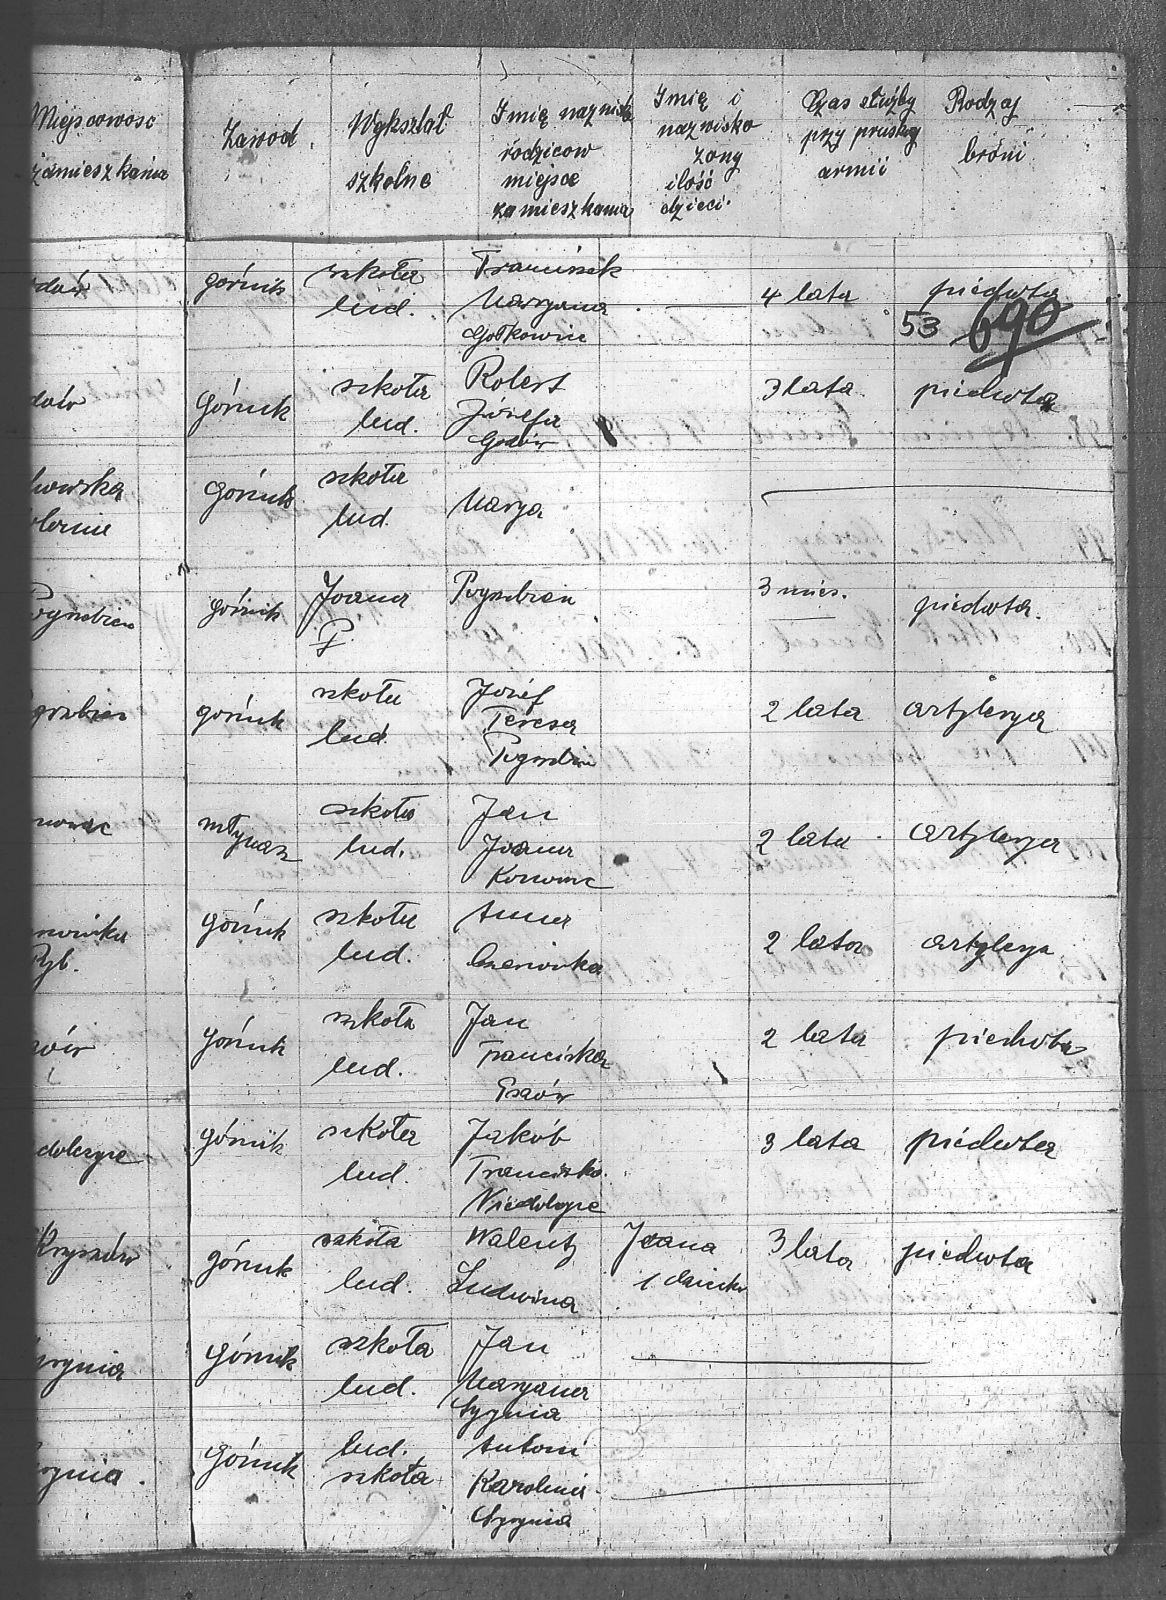 Miejscowosc
zamieszkania
Zawod.
Wykształ
szkolne
Imię nazwisk
rodzicow
miejsce
zamieszkania
Imię i
nazwisko
żony
ilość
dzieci.
Czas służby
przy pruskiej
armii
Rodzaj
broni
górnik
szkoła
lud.
Franciszek
Maryana
Gołkowice
4 lata
piechota
53 690
górnik
szkoła
lud.
Robert
Józefa
Godów
3 lata
piechota
górnik
szkoła
lud.
Marya
górnik
Joanna
P.
3 mies.
piechota.
górnik
szkoła
lud.
Józef
Teresa
2 lata
artylerya
młynarz
szkoła
lud.
Jan
Joanna
2 lata
artylerya
górnik
szkoła
lud.
Anna
Czernionka
2 lata
artylerya
Ryb.
górnik
szkoła
lud.
Jan
Franciszka
Pszów
2 lata
piechota
górnik
szkoła
lud.
Jakób
Franciszka
Niedobczyce
3 lata
piechota
dobczyce
Krzyszków
górnik
szkoła
lud.
Walenty
Ludwina
Joana
1 dziecko
3 lata
piechota
górnik
szkoła
lud.
Jan
Maryanna
Syrynia
górnik
lud.
szkoła
Antoni
Karolina
Syrynia